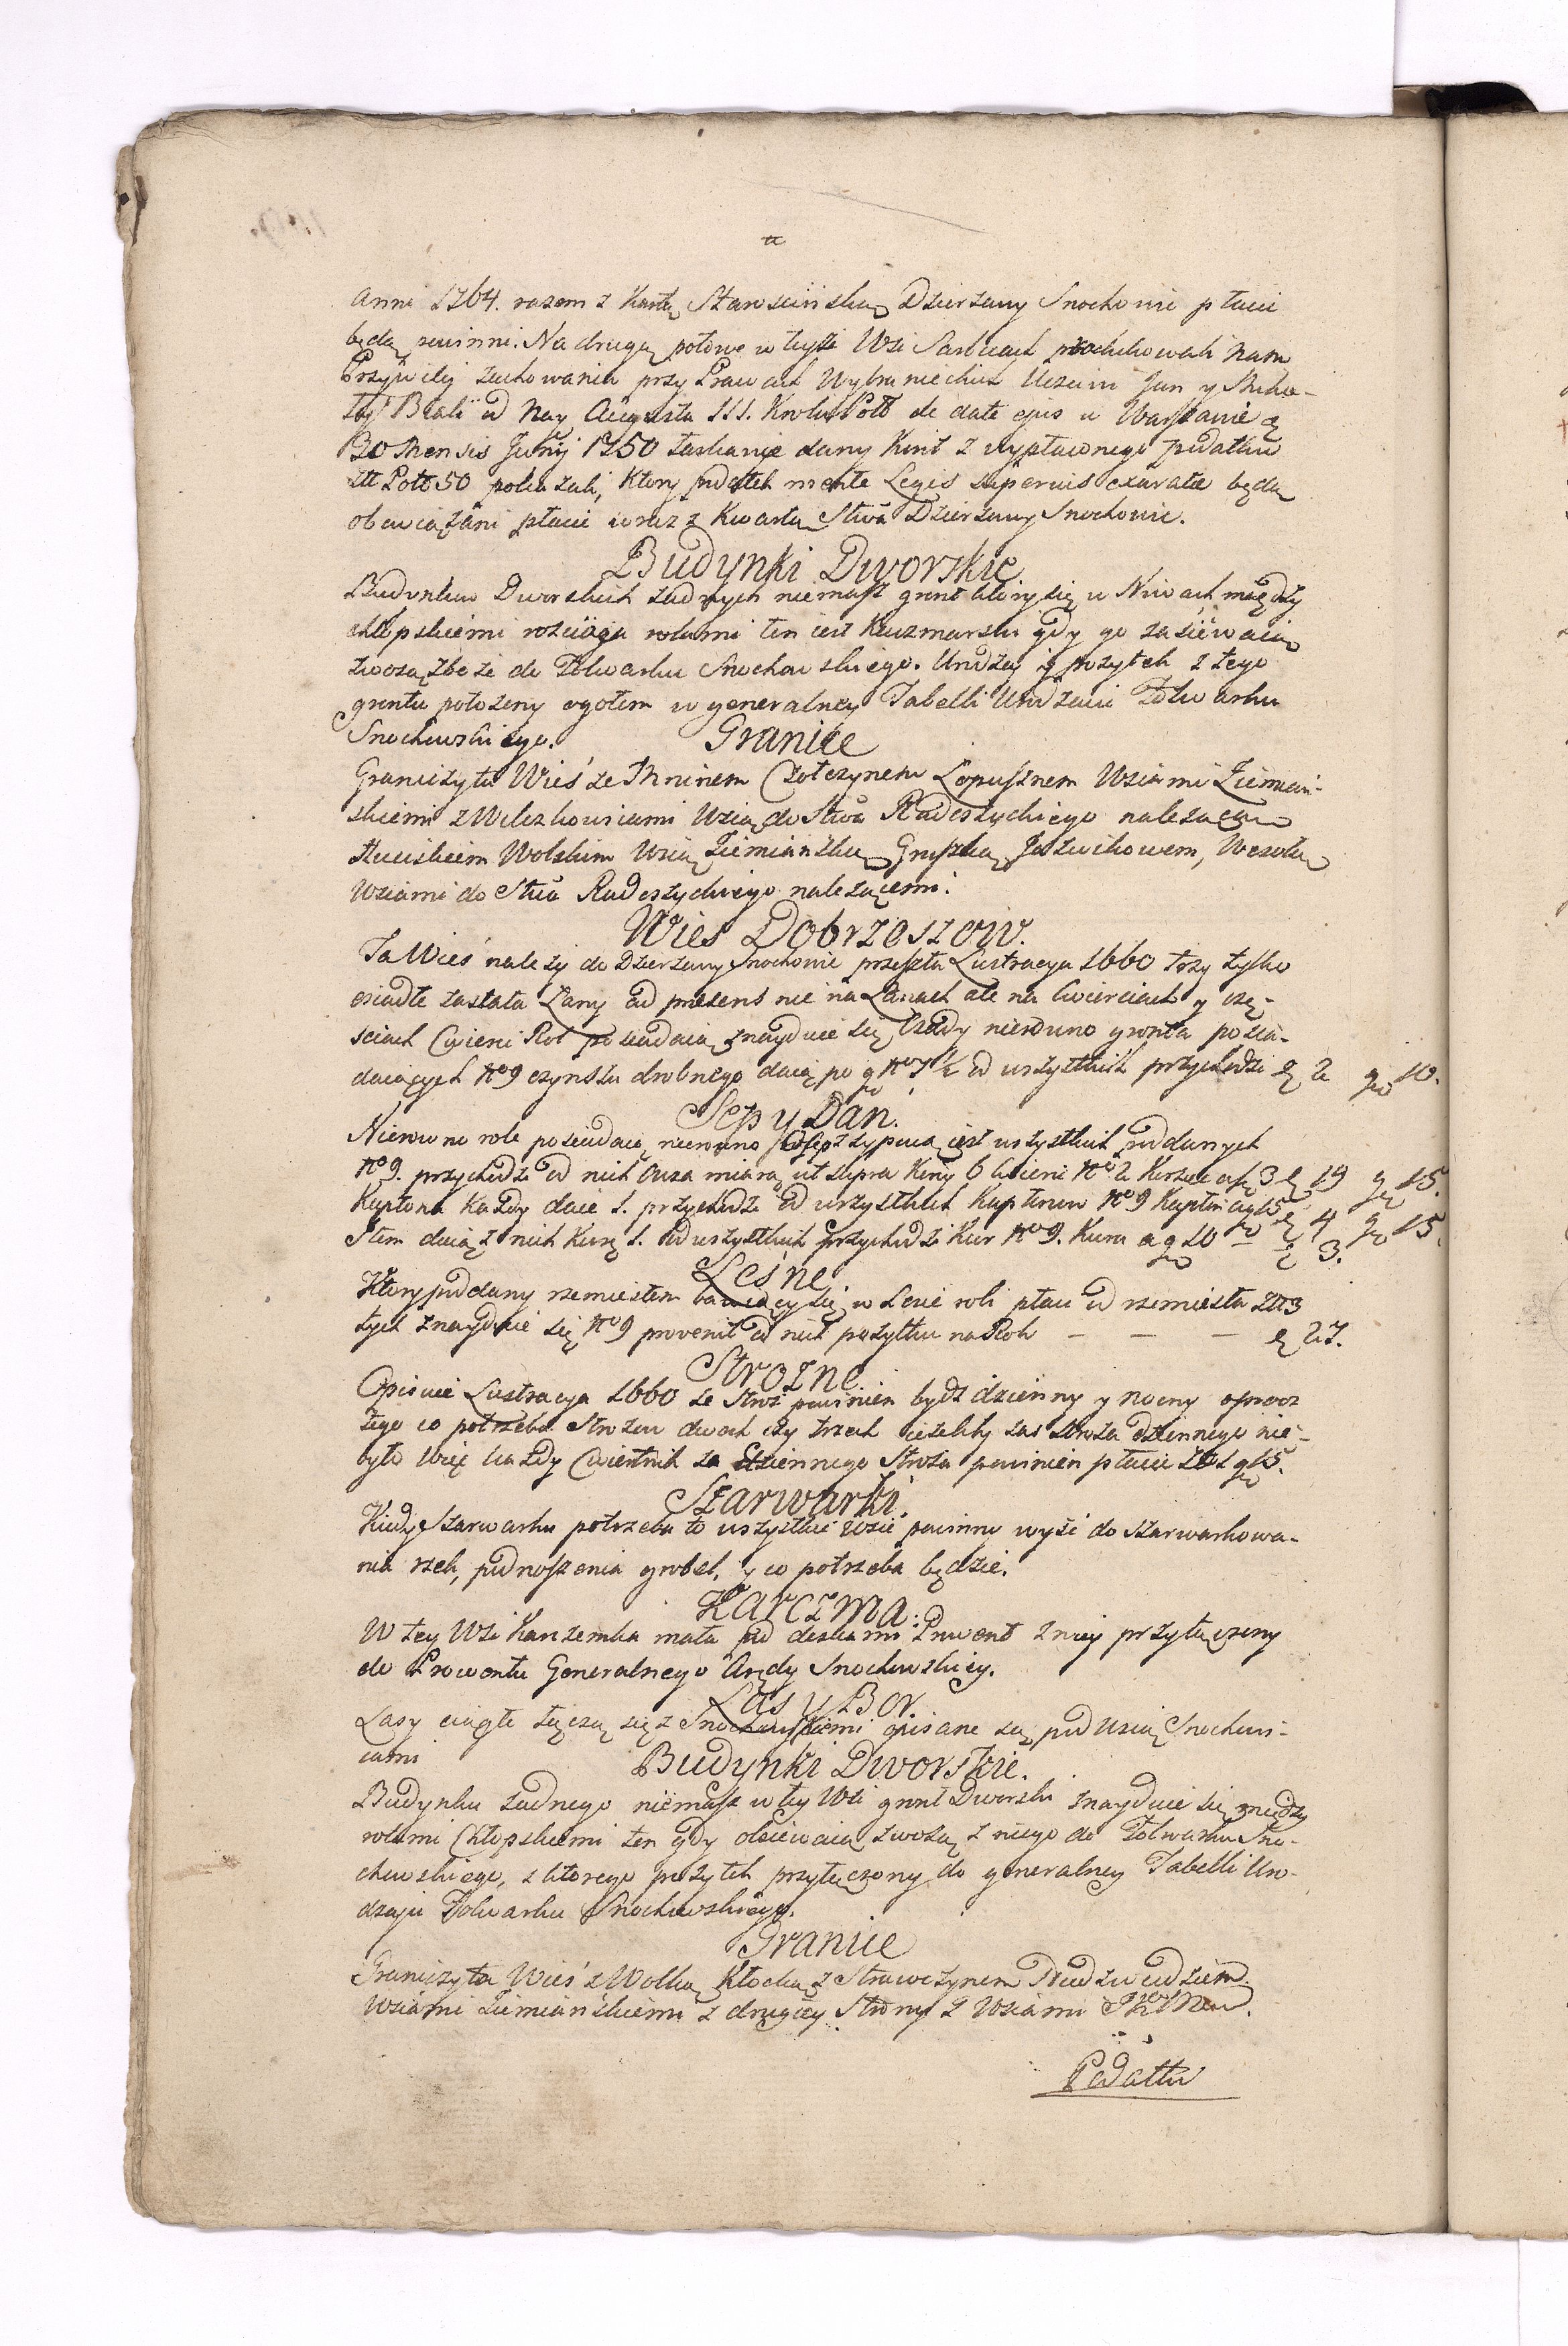 Anni 1764. razem z Kwartą Starościńską Dzierzawy Snochowic płacić
będą powinni. Na drugą połowę w teyże Wsi Sarbicach produkowali Nam
Przywiley zachowania przy Prawach Wybranieckich Uczciwi Jan y Miko-
łay Biali od Nay Augusta III. Krola Poll de date ejus w Warszawie d
30 Mensis Junij 1750 łaskawie dany Kwit z wypłaconego podatku
złł Poll 50 pokazali, Ktory podatek mente Legis superius exaratæ będą
obowiązani płacić wraz z Kwartą Stwa Dzierzawy Snochowic.
Budynki Dworskie
Budynkow Dworskich zadnych niemasz grunt ktory się w Niwach między
chłopskiemi rościąga rolami ten iest Kaczmarski gdy go zasiewaią
zwożą zboże do Folwarku Snochowskiego. Urodzay y pozytek z tego
gruntu położony ogołem w generalney Tabelli Urodzaiu Folwarku
Snochowskiego. Granice
Graniczy ta Wieś ze Mninem Czołczynem Łopusznem Wsiami Ziemiań-
skiemi z Wilczkowicami Wsią do Stwa Radoszyckiego nalezącą
Huciskiem Wolskim Wsią Ziemiańską Gruszką Jozwikowem, Wesołą
Wsiami do Stwa Radoszyckiego nalezącemi.
Wies Dobrzeszow.
Ta Wieś nalezy do Dzierzawy Snochowic przeszła Lustracya 1660 trzy tylko
osiadłe zastała Łany ad præsens nie na Łanach ale na Cwierciach y czę-
sciach Cwierci Rol posiadaią znayduie się Kazdy nierowno gronta posia-
daiących No 9 czynszu drobnego daią po g No 7 ½ od wszystkich przychodzi zł 2 gr 10.
Sep y Dań.
Nierowno role posiadaią nierowno Osep zsypuią iest wszystkich poddanych
No 9. przychodzi od nich Owsa miarą ut supra Kcy 6 Cwierci No 2 Korzec a zł 3 zł 19 gr 15.
Kapłona Kazdy daie 1. przychodzi od wszystkich Kapłonow No 9 Kapłon a gr 15 zł 4 gr 15.
Item daią z nich Kurę 1. od wszystkich przychodzi Kur No 9. Kura a gr 10 — zł 3.
Leśne.
Ktory poddany rzemiesłem bawiący się w Lesie robi płaci od rzemiesła Zł 3
tych znayduie się No 9 provenit od nich pozytku na Rok — — — zł 27.
Strozne.
Opisuie Lustracya 1660 ze Stroz powinien bydz dzienny y nocny oprocz
tego co potrzeba Strozow dwoch czy trzech iezeliby zas Stroza dziennego nie-
było Więc kazdy Cwiertnik za Dziennego Stroza powinien płacić Zł 1 gr 15.
Szarwarki.
Kiedy Szarwarku potrzeba to wszystkie Wsie powinny wyść do szarwarkowa-
nia rzek, podnoszenia grobel, y co potrzeba będzie.
Karczma.
W tey Wsi Karczemka mała pod deskami Prowent z niey przyłączony
do Prowentu Generalnego Ardy Snochowskiey.
Las y Bor.
Lasy ciągle łączą się z Snochowskiemi opisane są pod Wsią Snochowi-
cami Budynki Dworskie.
Budynku zadnego niemasz w tey Wsi grunt Dworski znayduie się między
rolami Chłopskiemi ten gdy obsiewaią zwożą z niego do Folwarku Sno-
chowskiego, z ktorego pozytek przyłączony do generalney Tabelli Uro-
dzaju Folwarku Snochowskiego.
Granice
Graniczy ta Wieś z Wolką Kłocką z Strawczynem Ruda
Wsiami Ziemiańskiemi z drugiey Strony z Wsiami
Podatku